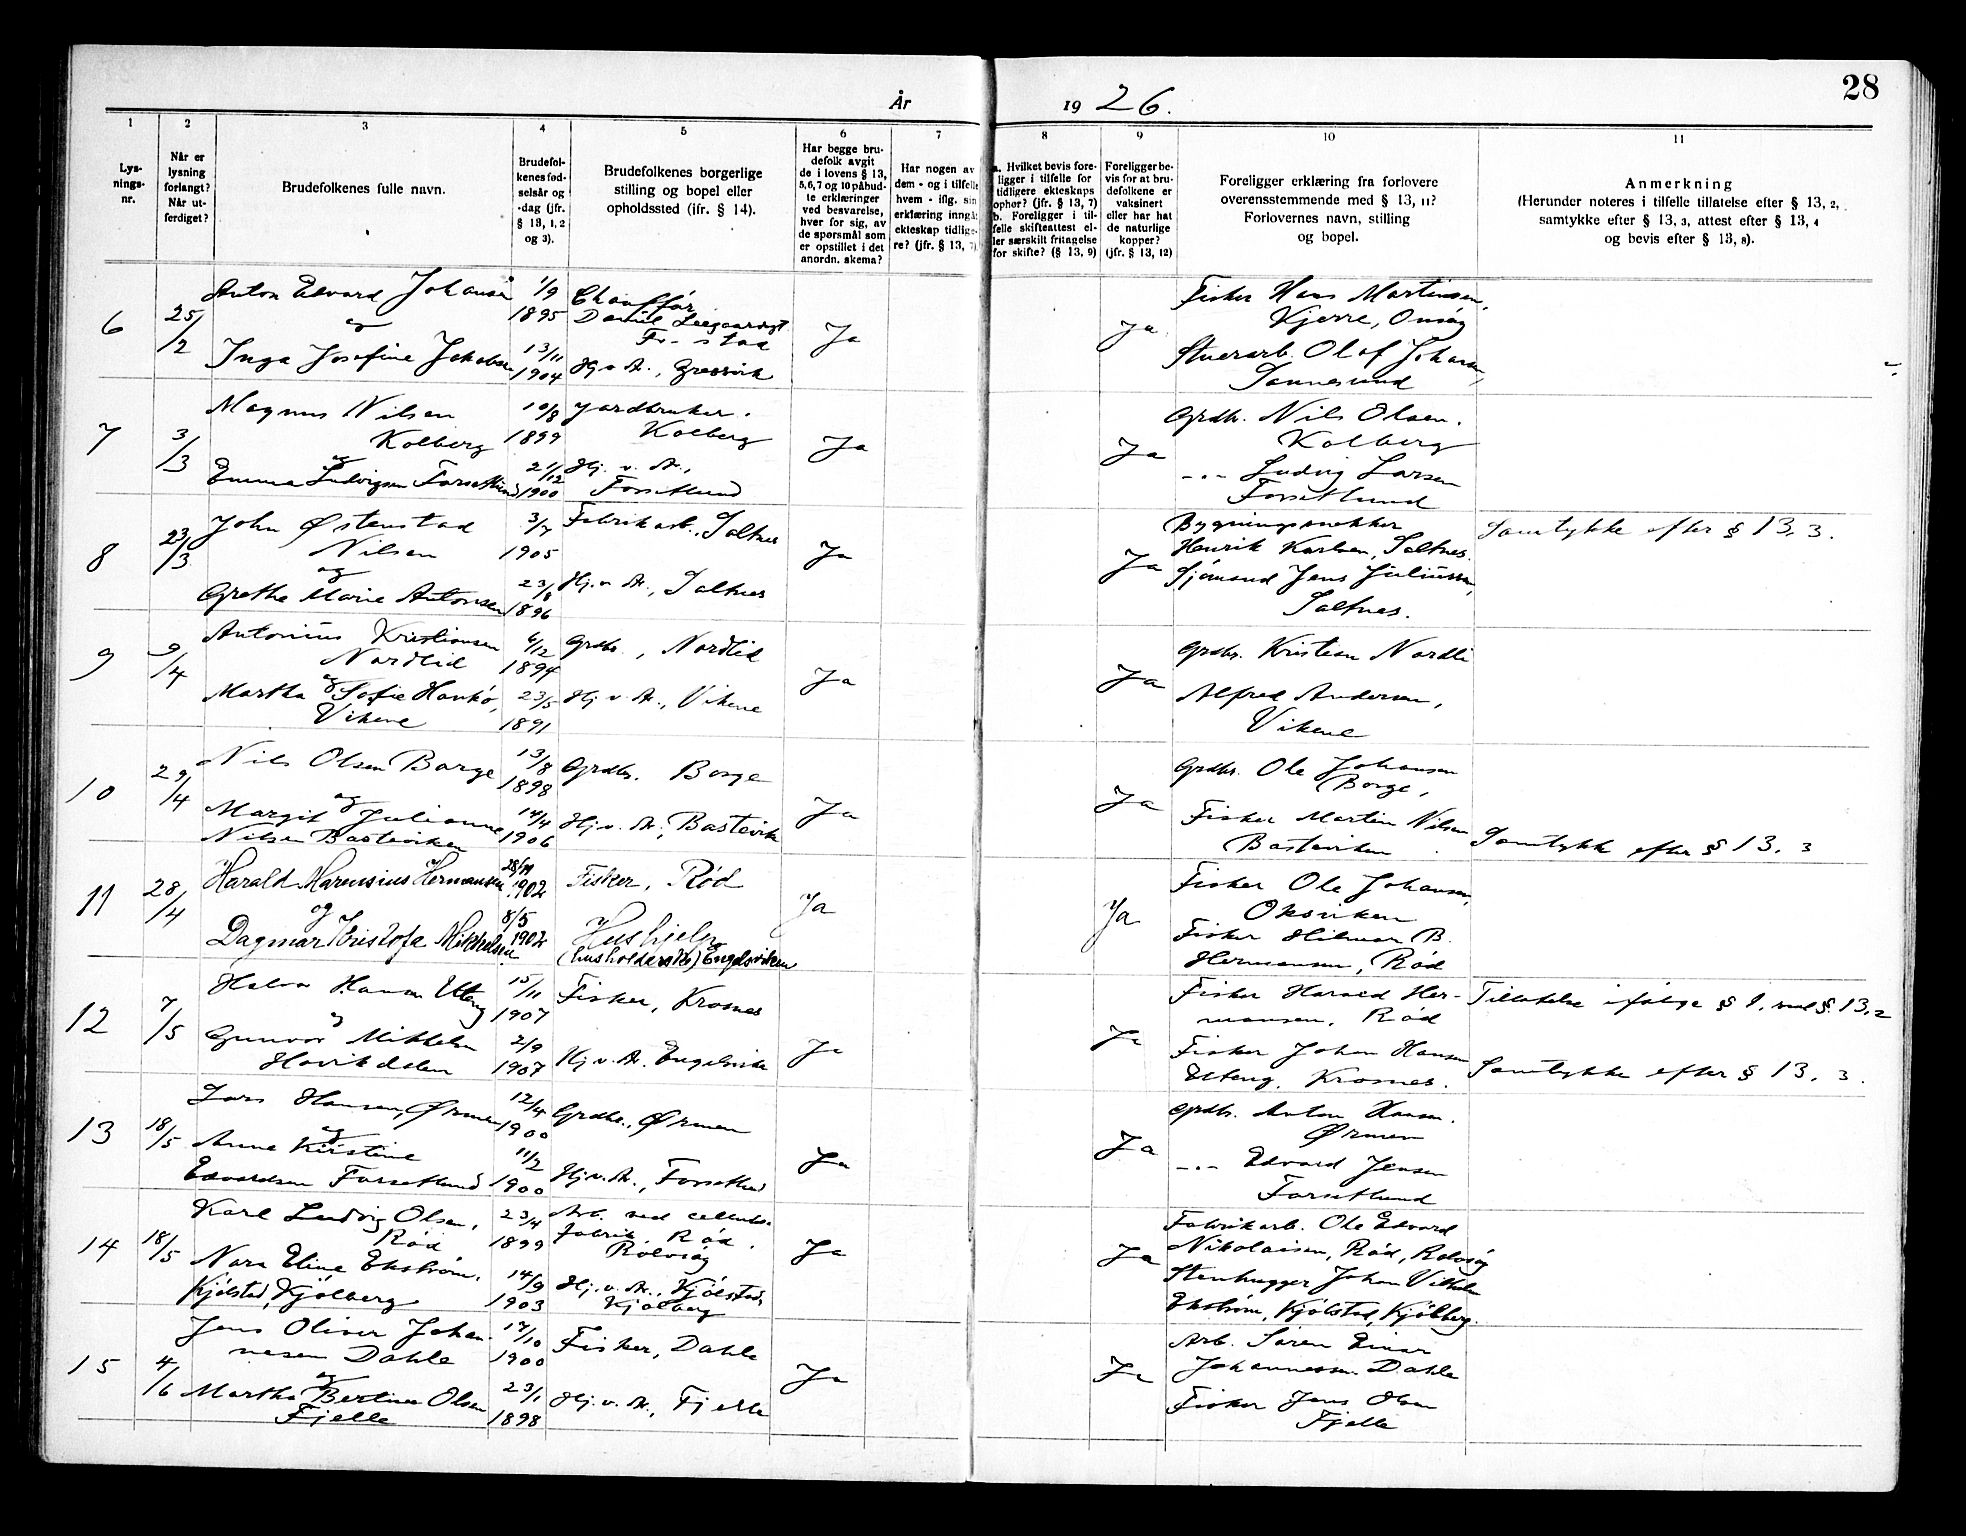 28
År 1926.
1 2 3 4 5 6 7 8 9 10 11
Lys-
nings-
nr.
Når er
lysning
forlangt?
Når ut-
ferdiget?
Brudefolkenes fulle navn.
Brudefol-
kenes fød-
selsår og
-dag (jfr.
§ 13, 1, 2
og 3).
Brudefolkenes borgerlige
stilling og bopel eller
opholdssted (jfr. § 14).
Har begge bru-
defolk avgit
de i lovens § 13,
5, 6, 7 og 10 påbud-
te erklæringer
ved besvarelse,
hver for sig, av
de spørsmål som
er opstillet i det
anordn. skema?
Har nogen av
dem - og i tilfelle
hvem - iflg. sin
erklæring inngåt
ekteskap tidlige-
re? (jfr. § 13, 7)
a. Hvilket bevis fore-
ligger i tilfelle for
tidligere ekteskaps
ophør? (jfr. § 13, 7)
b. Foreligger i til-
felle skifteattest el-
ler særskilt fritagelse
for skifte? (§ 13, 9)
Foreligger be-
vis for at bru-
defolkene er
vaksinert
eller har hat
de naturlige
kopper?
(jfr. § 13, 12)
Foreligger erklæring fra forlovere
overensstemmende med § 13, 11?
Forlovernes navn, stilling
og bopel.
Anmerkning
(Herunder noteres i tilfelle tillatelse efter § 13, 2,
samtykke efter § 13, 3, attest efter § 13, 4
og bevis efter § 13, 8).
6 25/2
Anton Edvard Johansen 1/9 1895 Chauffør
og
Fr-stad
Inga Josefine Jakobsen 13/11 1904 Hj. v. A., Gressvik
Ja Ja
Fisker Hans Martinsen,
Kjerre, Onsøy
Stuerarb. Olaf Johansen,
Sannesund
7 3/3
Magnus Nilsen 10/8 1899 Jordbruker.
Kolberg Kolberg
og
Emma Ludvigsen Forsetlund 21/12 1900 Hj. v. A.,
Forsetlund
Ja Ja
Grdbr. Nils Olsen.
Kolberg
-"- Ludvig Larsen
Forsetlund
8 23/3
John Østenstad 3/7 1905 Fabrikarb., Saltnes
Nilsen
og
Grethe Marie Antonsen 23/8 1896 Hj. v. A., Saltnes
Ja Ja
Bygningssnekker
Henrik Karlsen, Saltnes.
Sjømand Jens Juliussen,
Saltnes.
Samtykke efter § 13, 3.
9 9/4
Antonius Kristiansen 6/12 1894 Grdbr., Nordlid
Nordlid
og
Martha Sofie Hankø, 23/5 1891 Hj. v. A., Vikene
Vikene
Ja Ja
Grdbr. Kristian Nordli
Alfred Andersen,
Vikene
10 29/4
Nils Olsen Borge 13/8 1898 Grdbr. Borge
og
Margit Julianne 14/4 1906 Hj. v. A., Bastevik
Nilsen Basteviken
Ja Ja
Grdbr. Ole Johansen
Borge,
Fisker Martin Nilsen
Basteviken
Samtykke efter § 13, 3
11 28/4
Harald Marensius Hermansen 28/11 1902 Fisker, Rød
og
Dagmar Kristofa Mikkelsen 8/5 1902 Hushjelp
(husholderske) Engelsviken
Ja Ja
Fisker Ole Johansen,
Oksviken
Fisker Hilmar B.
Hermansen, Rød
12 7/5
Halvor Hansen Uteng 15/11 1907 Fisker, Krosnes
og
Gunvor Mikkelsen 2/9 1907 Hj. v. A. Engelsvik
Ja Ja
Fisker Harald Her-
mansen, Rød
Fisker Johan Hansen
Uteng, Krosnes.
Tillatelse ifølge § 1, med § 13, 2
Samtykke efter § 13, 3.
13 18/5
Lars Hansen, Ørmen 12/4 1900 Grdbr., Ørmen
og
Anne Kirstine 11/2 1900 Hj. v. A., Forsetlund
Edvardsen Forsetlund
Ja Ja
Grdbr. Anton Hansen.
Ørmen
-"- Edvard Jensen
Forsetlund
14 18/5
Karl Ludvig Olsen, 23/4 1899 Arb. ved cellulose
Rød fabrik, Rød.
Rolvsøy
Nora Eline Ekstrøm. 14/9 1903 Hj. v. A., Kjølstad,
Kjølstad, Kjølberg Kjølberg
Ja Ja
Fabrikarb. Ole Edvard
Nikolaisen, Rød, Rolvsøy
Stenhugger Johan Vilhelm
Ekstrøm, Kjølstad, Kjølberg.
15 4/6
Jens Oliver Johan- 17/10 1900 Fisker, Dahle
nesen Dahle
og
Martha Bertine Olsen 23/1 1898 Hj. v. A., Fjelle
Fjelle
Ja Ja
Arb. Søren Einar
Johannesen Dahle
Fisker Jens Olsen
Fjelle